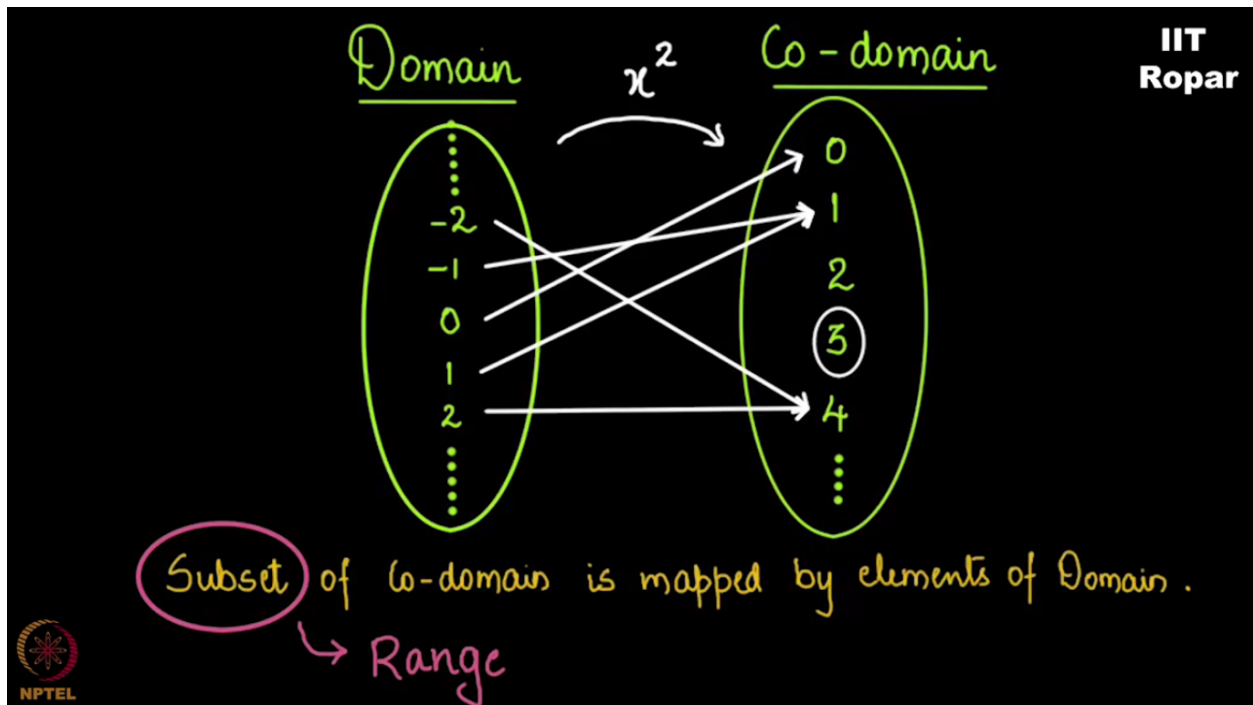 Domain
x²
Co-domain
IIT
Ropar
-2
-1
0
1
2
0
1
2
3
4
Subset of Co-domain is mapped by elements of Domain.
Range
NPTEL